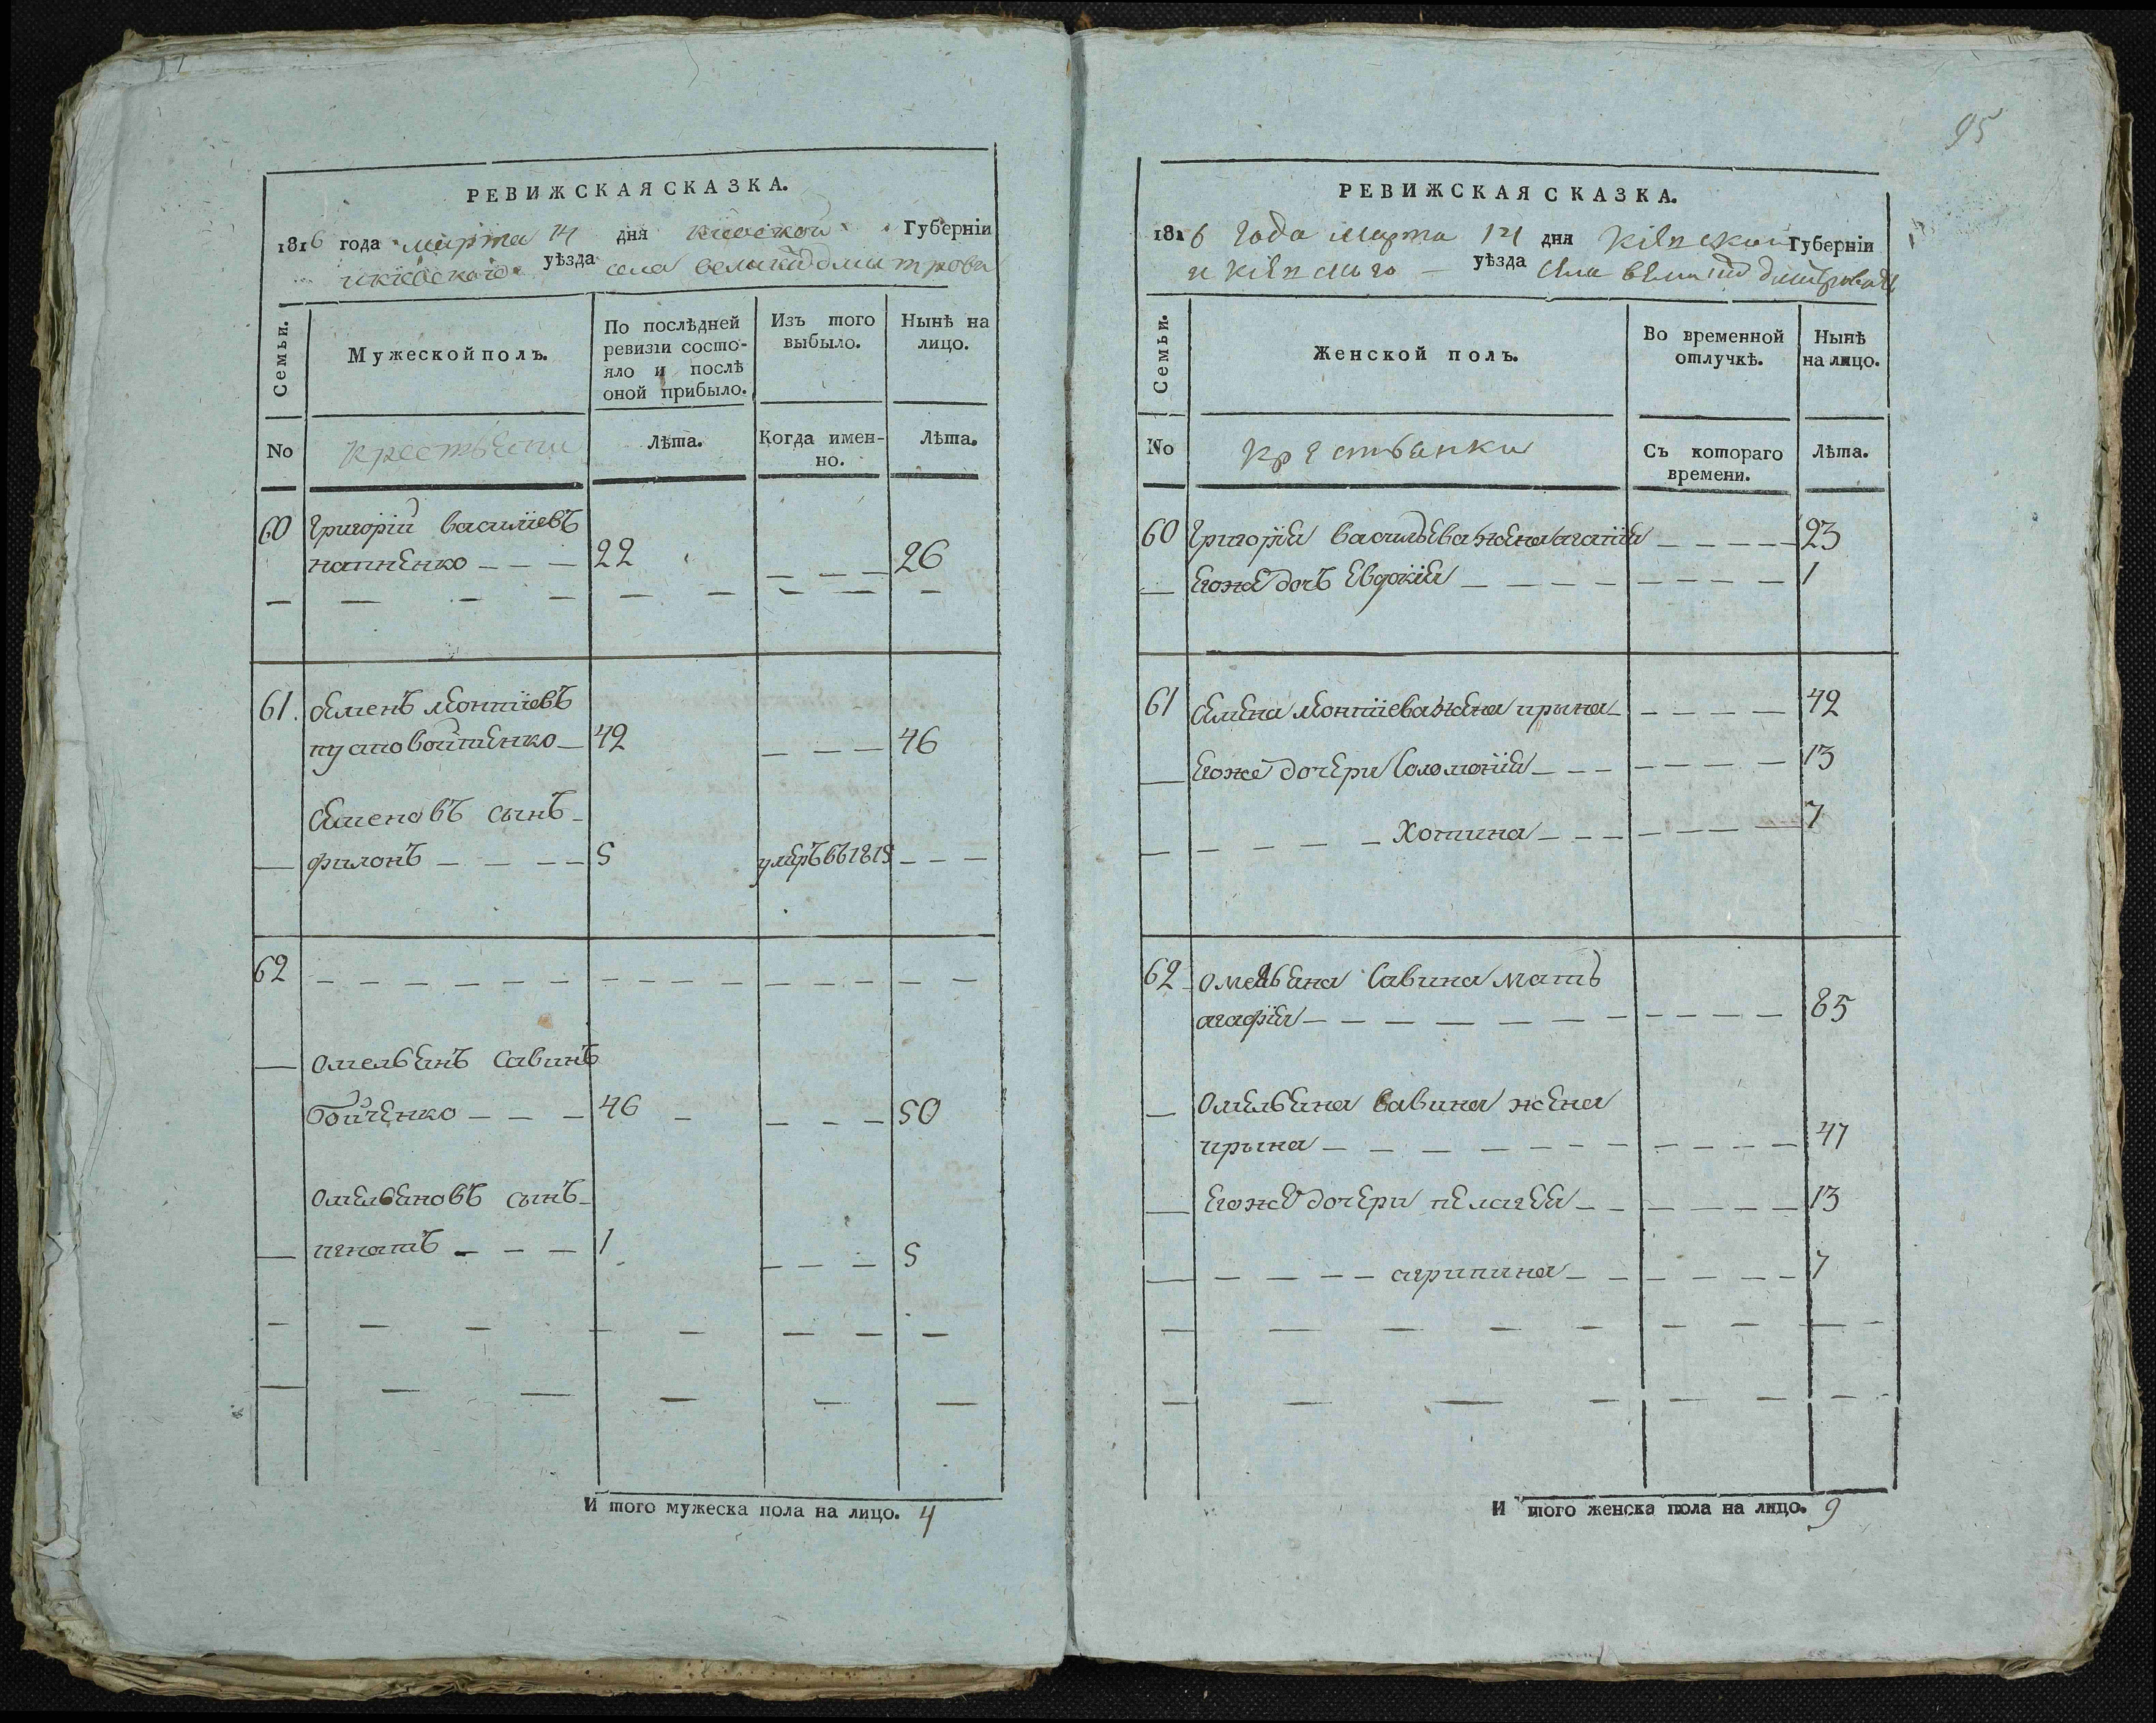 РЕВИЖСКАЯ СКАЗКА.
1816 года марта 14 дня киевской Губерніи
икиевского уѣзда села великой дмытровки
Семьи.
Мужеской полъ.
По послѣдней ревизіи состо-
яло и послѣ
оной прибыло.
Изъ того
выбыло.
Нынѣ на
лицо.
No крестьяни Лѣта. Когда имен-
но. Лѣта.
60 Григорій василіевъ
22 26
61. семенъ леонтіевъ
пустовойтенко 42 46
семеновъ сынъ
филонъ 5 умеръ въ 1815
62
омельянъ савинъ
бойченко 46 50
омельяновъ сынъ
игнатъ 1 5
И того мужеска пола на лицо. 4
95
РЕВИЖСКАЯ СКАЗКА.
1816 года марта 14 дня киевской Губерніи
и киевского уѣзда села великой
Семьи.
Женской полъ.
Во временной
отлучкѣ.
Нынѣ
на лицо.
No крестьянки Съ котораго
времени. Лѣта.
60 Григорія васильева жена агапія 23
егоже дочъ евдокия 1
61 семена леонтіева жена ирына 42
егоже дочери соломонія 13
Хотина 7
62 омельяна савина мать
агафія 85
омельяна савина жена
ирына 47
егоже дочери пелагея 13
агрипина 7
И того женска пола на лицо. 9